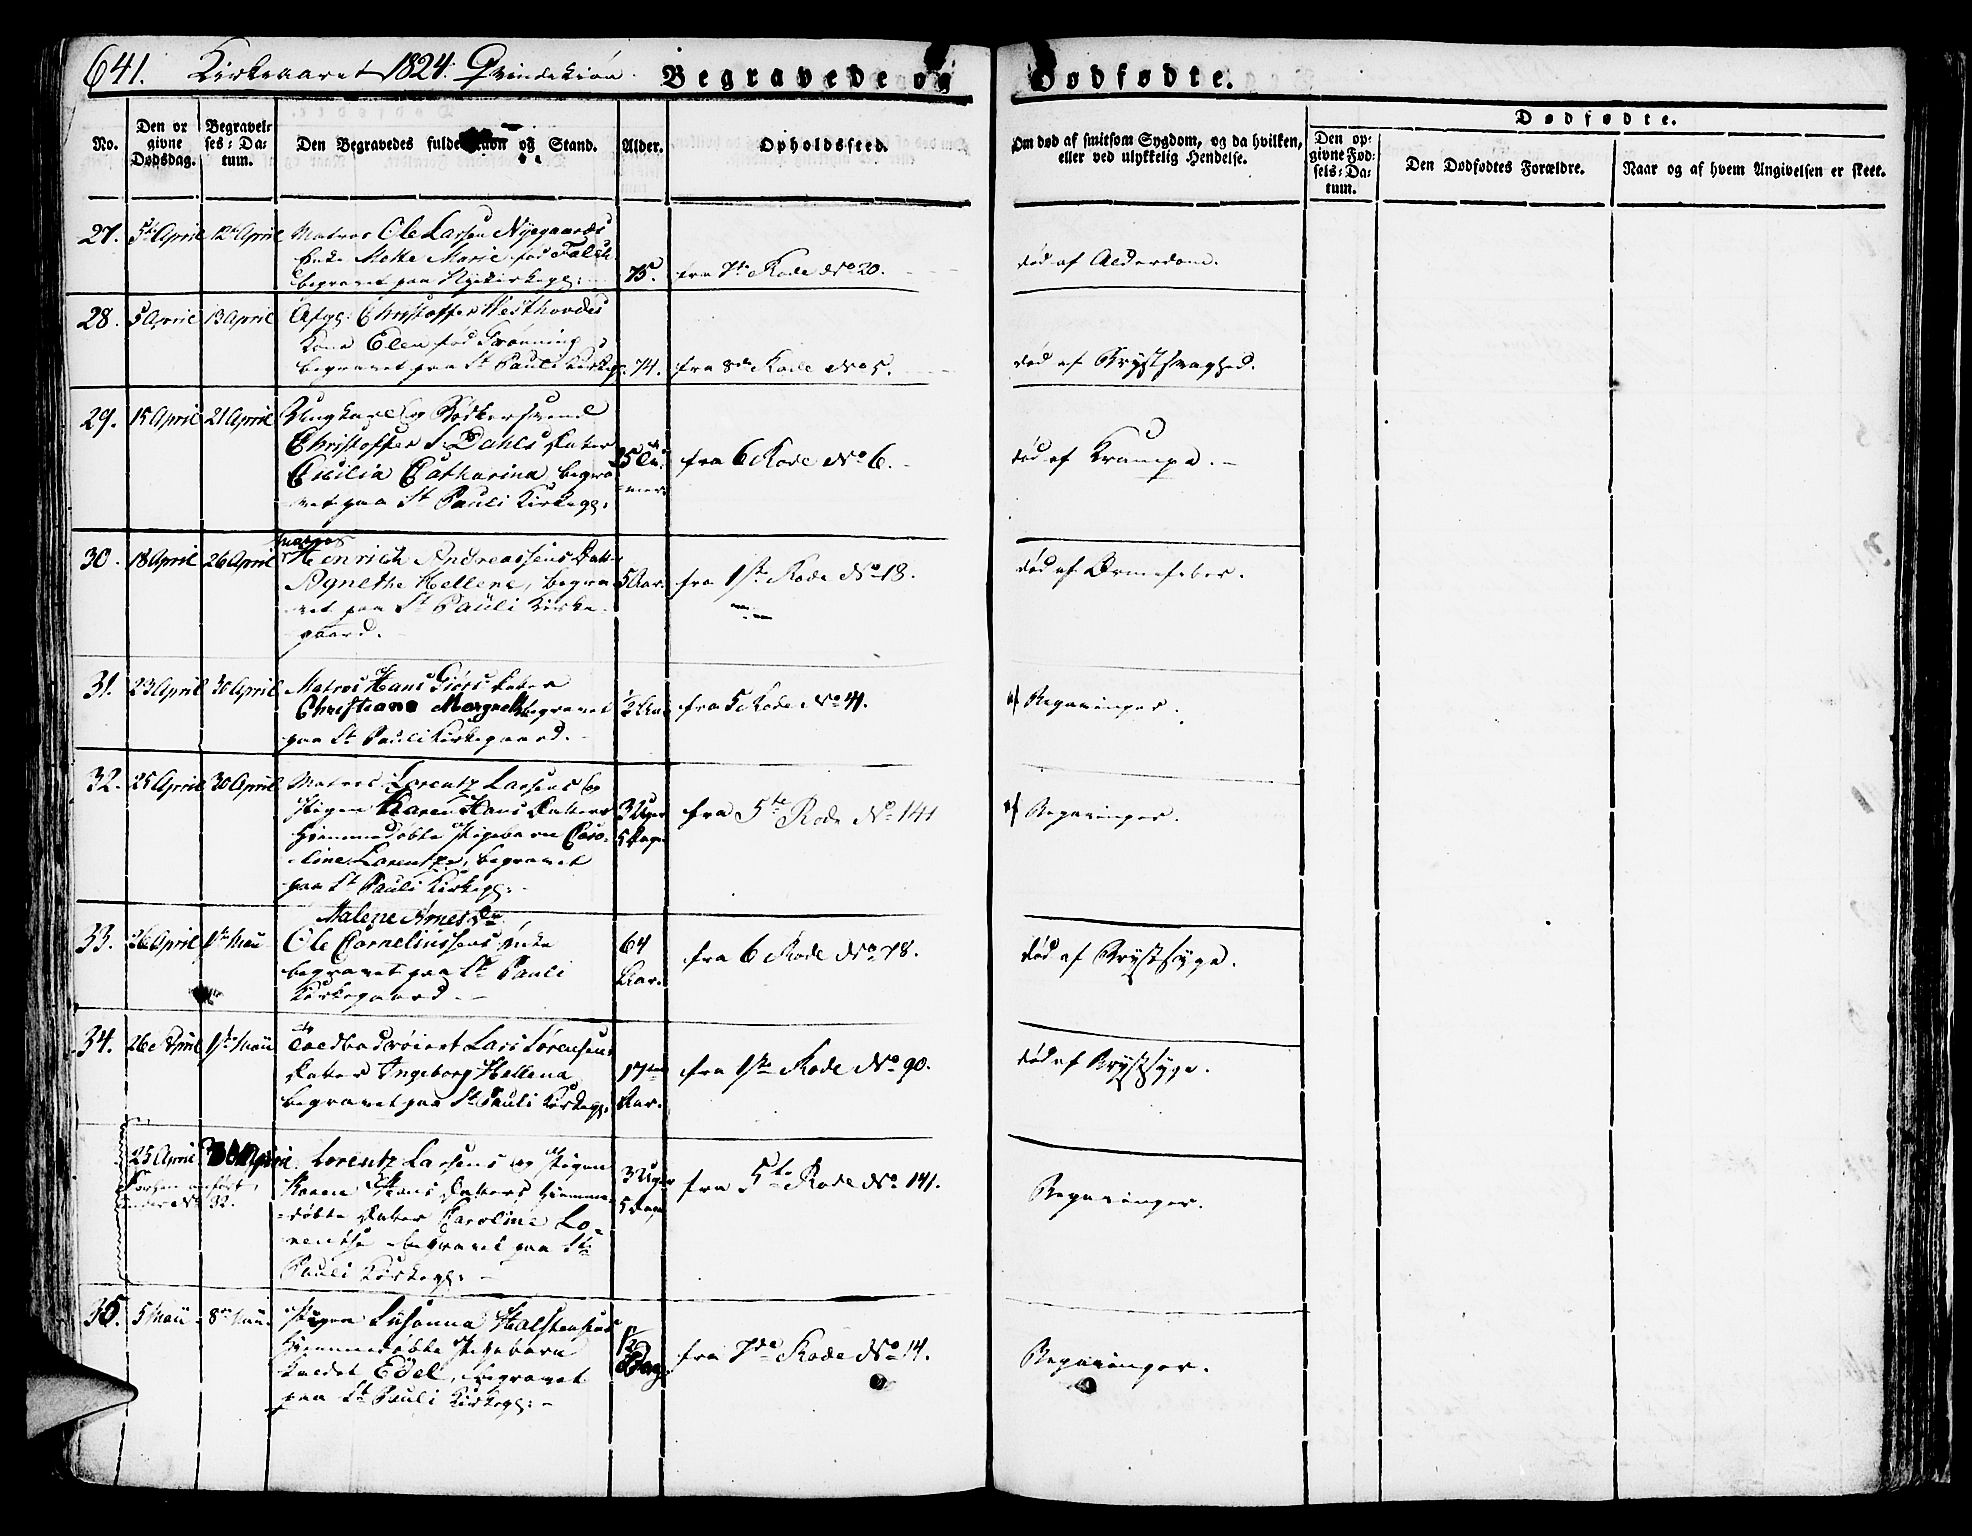 641. Kirkeaaret 1824. Qvindekiøn. Begravede og Dødfødte.
No.
Den opgivne Dødsdag.
Begravelses-Datum.
Den Begravedes fulde Navn og Stand.
Alder.
Opholdssted.
Om død af smitsom Sygdom, og da hvilken,
eller ved ulykkelig Hendelse.
Dødfødte.
Den opgivne Fødsels-Datum.
Den Dødfødtes Forældre.
Naar og af hvem Angivelsen er skeet.
27. 5te April 12te April Matros Ole Larsen Nyegaards
Enke Mette Marie fød Falch
begravet paa Nyekirkeg:
75. fra 7de Rode No 20. død af Alderdom.
28. 5 April 13 April Afg: Christoffer Westhovdes
Kone Elen fød Grønning
begravet paa St Pauli Kirkeg:
74. fra 8de Rode No 5. død af Brystsvaghed.
29. 15 April 21 April Ungkarl og Bødkersvend
Christoffer S. Dahls Datter
Cicilia Catharina, begra-
vet paa St Pauli Kirkeg:
fra 6 Rode No 6. død af Krampe.
30. 18 April 26 April Matros
Henrich Andreassens Datter
Agnethe Hellene, begra-
vet paa St Pauli Kirke-
gaard.
5 Aar. fra 1ste Rode No 18. død af Ormefeber.
31. 23 April 30 April Matros Hans Giørs Datter
Christiane Margrethe begravet
paa St Pauli Kirkegaard.
1/2 Aar fra 5 Rode No 41. af Begavinger.
32. 25 April 30 April Matros Lorentz Larsens og
Pigen Karen Hans Datters
hiemmedøbte Pigebarn Caro-
line Lorentze, begravet
paa St Pauli Kirkeg:
3 Uger
5 Dage fra 5te Rode No 141 af Begavinger.
33. 26 April 1ste Maii Malene Arnes Dr
Ole Corneliussens Enke
begravet paa St Pauli
Kirkegaard.
64
Aar. fra 6 Rode No 78. død af Brystsyge.
34. 26 April 1ste Maii Lars Sørensens
Datter Ingeborg Hellena
begravet paa St Pauli Kirkeg:
17
Aar. fra 1ste Rode No 90. død af Brystsyge.
25 April 30 April. Lorentz Larsens og Pigen
Karen Hans Datters hiemme-
døbte Datter Caroline Lo-
rentse begravet paa St
Pauli Kirkeg:
anført
under No 32.
3 Uger
5 Dage fra 5te Rode No 141. Begavinger.
35. 5 Maii 8de Maii. Pigen Susanna Halstensens
hiemmedøbte Pigebarn
kaldet Edel, begravet
paa St Pauli Kirkeg:
1/2
Dag fra 7de Rode No 14. Begavinger.